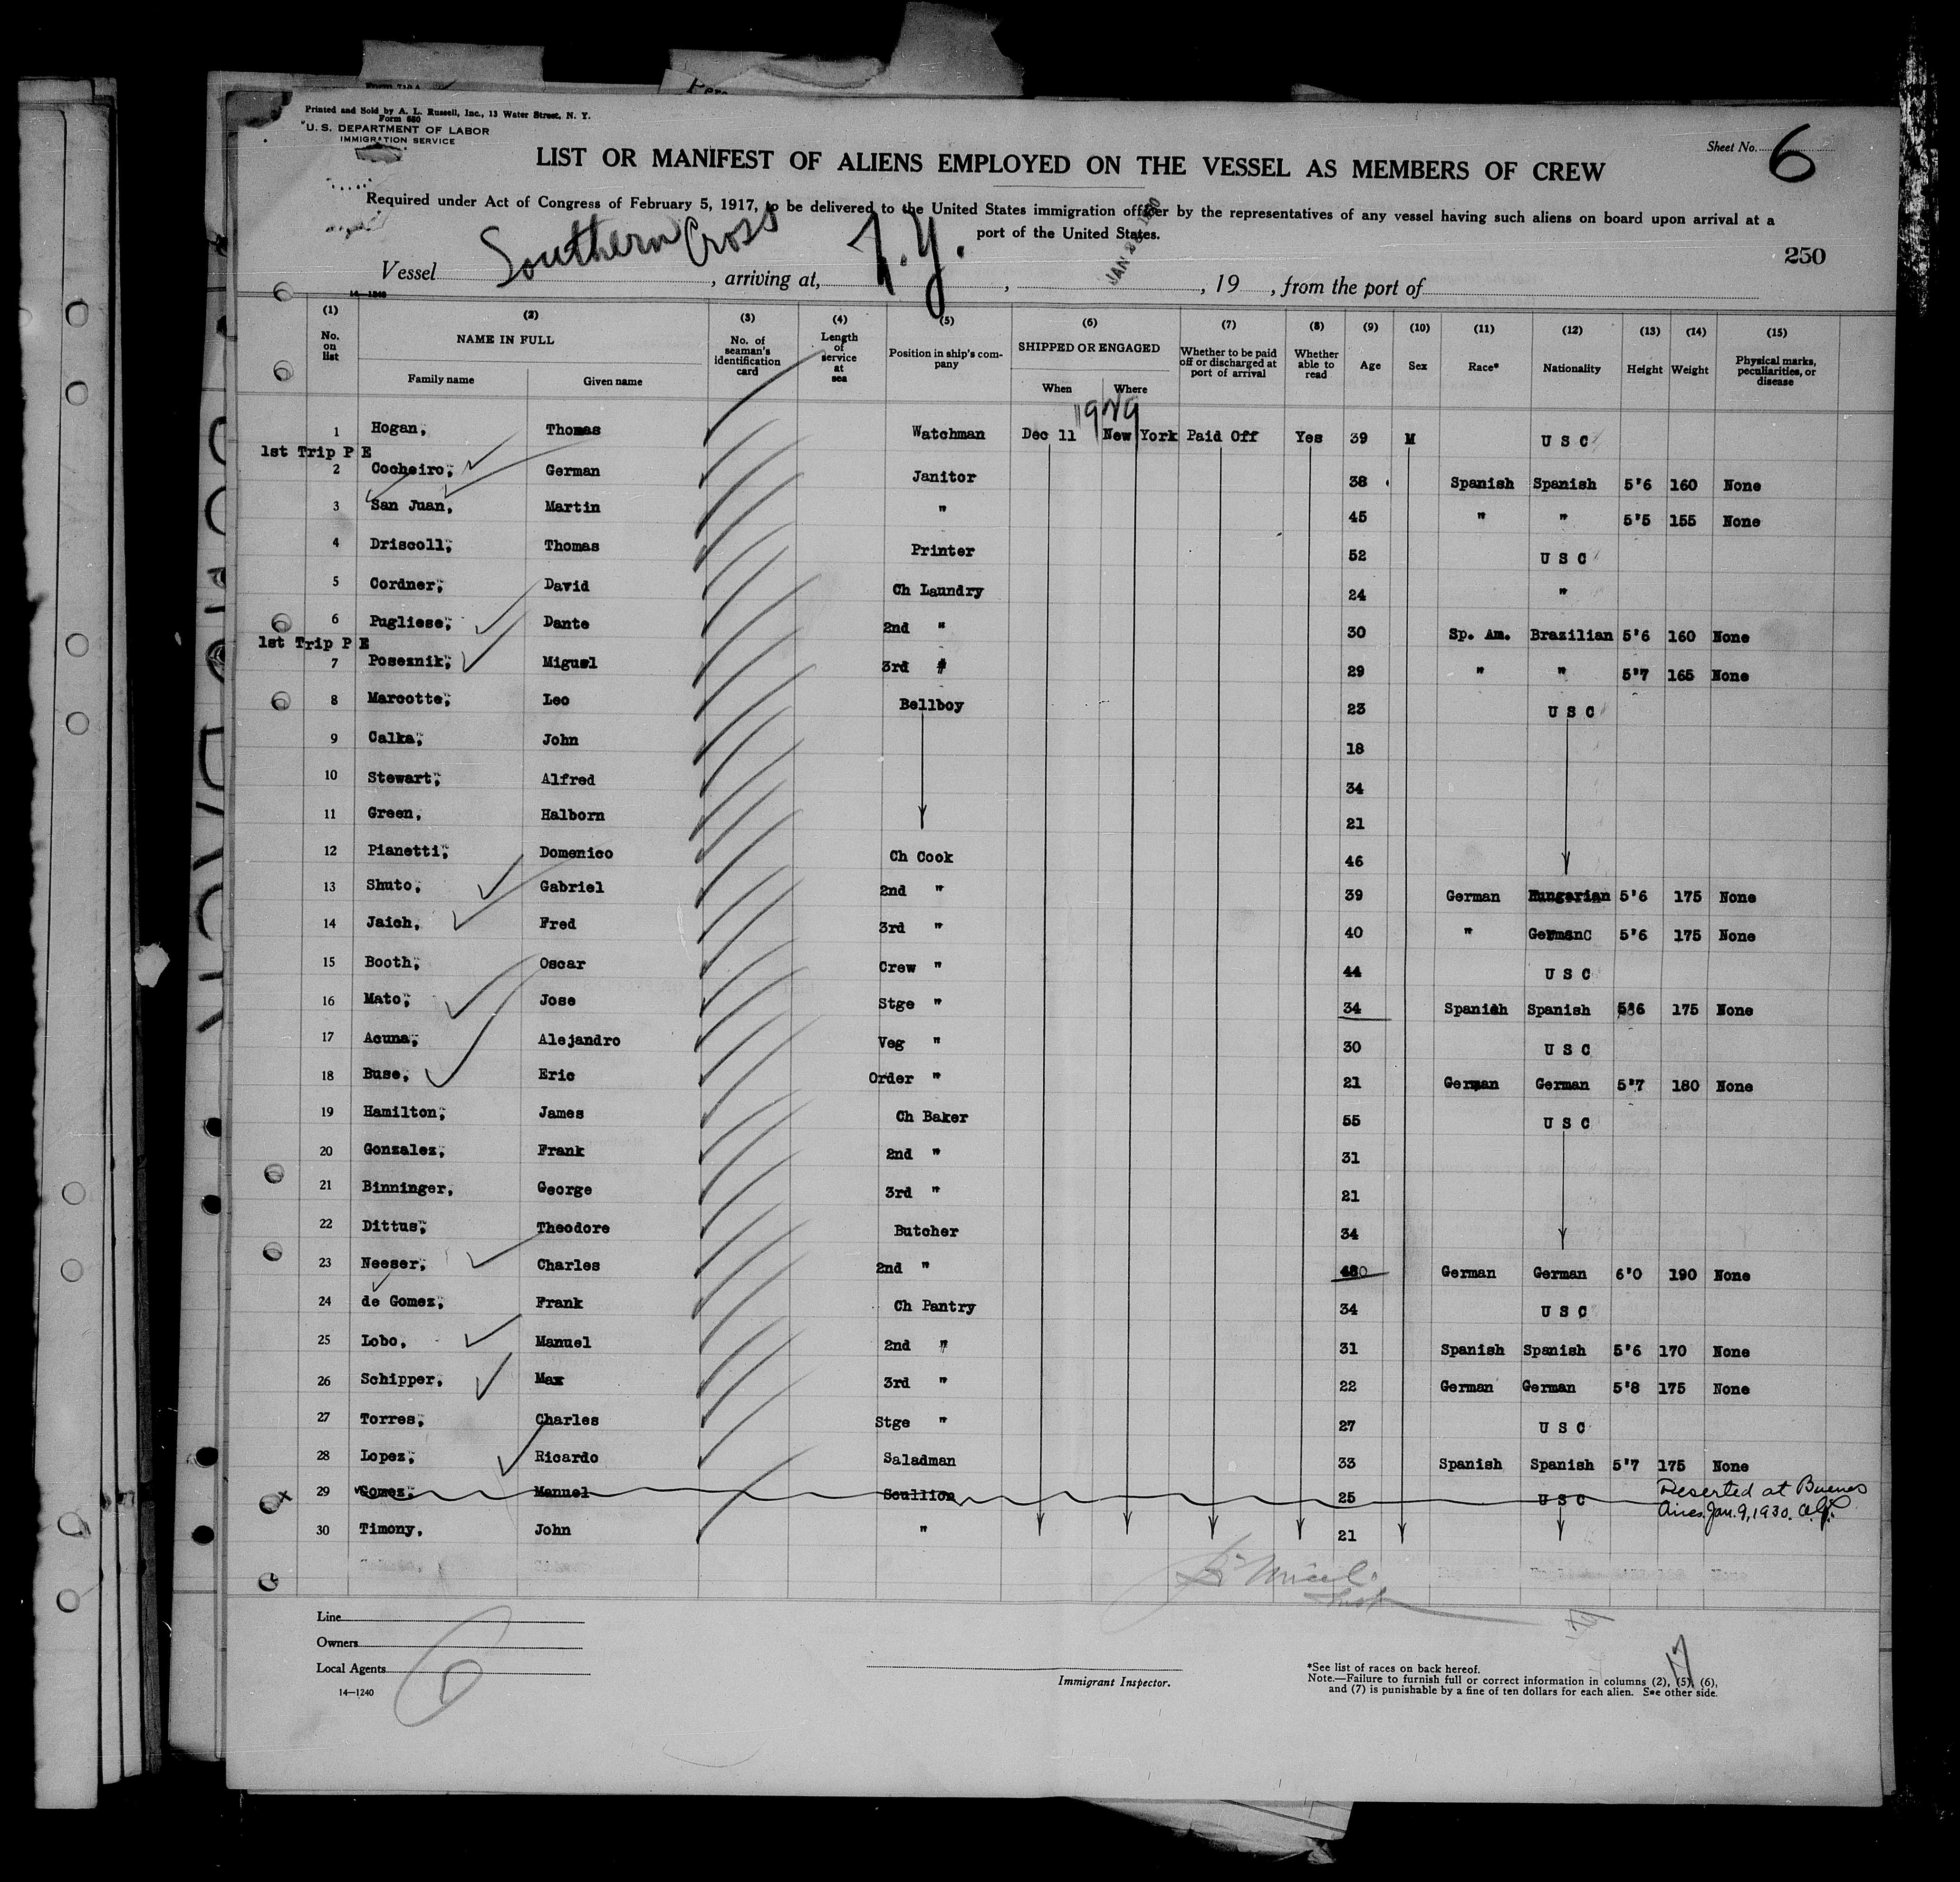 Printed and Sold by A. L. Russell, Inc., 13 Water Street, N. Y.
Form 680
U. S. DEPARTMENT OF LABOR
IMMIGRATION SERVICE
Sheet No. 6
LIST OR MANIFEST OF ALIENS EMPLOYED ON THE VESSEL AS MEMBERS OF CREW
Required under Act of Congress of February 5, 1917, to be delivered to the United States immigration officer by the representatives of any vessel having such aliens on board upon arrival at a
port of the United States.
250
Vessel Southern Cross, arriving at, N.Y., JAN 1930, 19 , from the port of
14—1240
(1) (2) (3) (4) (5) (6) (7) (8) (9) (10) (11) (12) (13) (14) (15)
No. on list NAME IN FULL No. of seaman's identification card Length of service at sea Position in ship's company SHIPPED OR ENGAGED Whether to be paid off or discharged at port of arrival Whether able to read Age Sex Race* Nationality Height Weight Physical marks, peculiarities, or disease
Family name Given name When Where
1929
1 Hogan, Thomas Watchman Dec 11 New York Paid Off Yes 39 M U S C
1st Trip P E
2 Cocheiro, German Janitor 38 Spanish Spanish 5'6 160 None
3 San Juan, Martin " 45 " " 5'5 155 None
4 Driscoll, Thomas Printer 52 U S C
5 Cordner, David Ch Laundry 24 "
6 Pugliese, Dante 2nd " 30 Sp. Am. Brazilian 5'6 160 None
1st Trip P E
7 Poseznik, Miguel 3rd " 29 " " 5'7 165 None
8 Marcotte, Leo Bellboy 23 U S C
9 Calka, John 18
10 Stewart, Alfred 34
11 Green, Halborn 21
12 Pianetti, Domenico Ch Cook 46
13 Shuto, Gabriel 2nd " 39 German Hungarian 5'6 175 None
14 Jaich, Fred 3rd " 40 " German 5'6 175 None
15 Booth, Oscar Crew " 44 U S C
16 Mato, Jose Stge " 34 Spanish Spanish 5'6 175 None
17 Acuna, Alejandro Veg " 30 U S C
18 Buse, Eric Order " 21 German German 5'7 180 None
19 Hamilton, James Ch Baker 55 U S C
20 Gonzalez, Frank 2nd " 31
21 Binninger, George 3rd " 21
22 Dittus, Theodore Butcher 34
23 Neeser, Charles 2nd " German German 6'0 190 None
24 de Gomez, Frank Ch Pantry 34 U S C
25 Lobo, Manuel 2nd " 31 Spanish Spanish 5'6 170 None
26 Schipper, Max 3rd " 22 German German 5'8 175 None
27 Torres, Charles Stge " 27 U S C
28 Lopez, Ricardo Saladman 33 Spanish Spanish 5'7 175 None
29 Gomez, Manuel Scullion 25 U S C Deserted at Buenos
Aires. Jan. 9, 1930.
30 Timony, John " 21
Line
Owners
Local Agents
14—1240
Immigrant Inspector.
*See list of races on back hereof.
Note.—Failure to furnish full or correct information in columns (2), (5), (6),
and (7) is punishable by a fine of ten dollars for each alien. See other side.
17